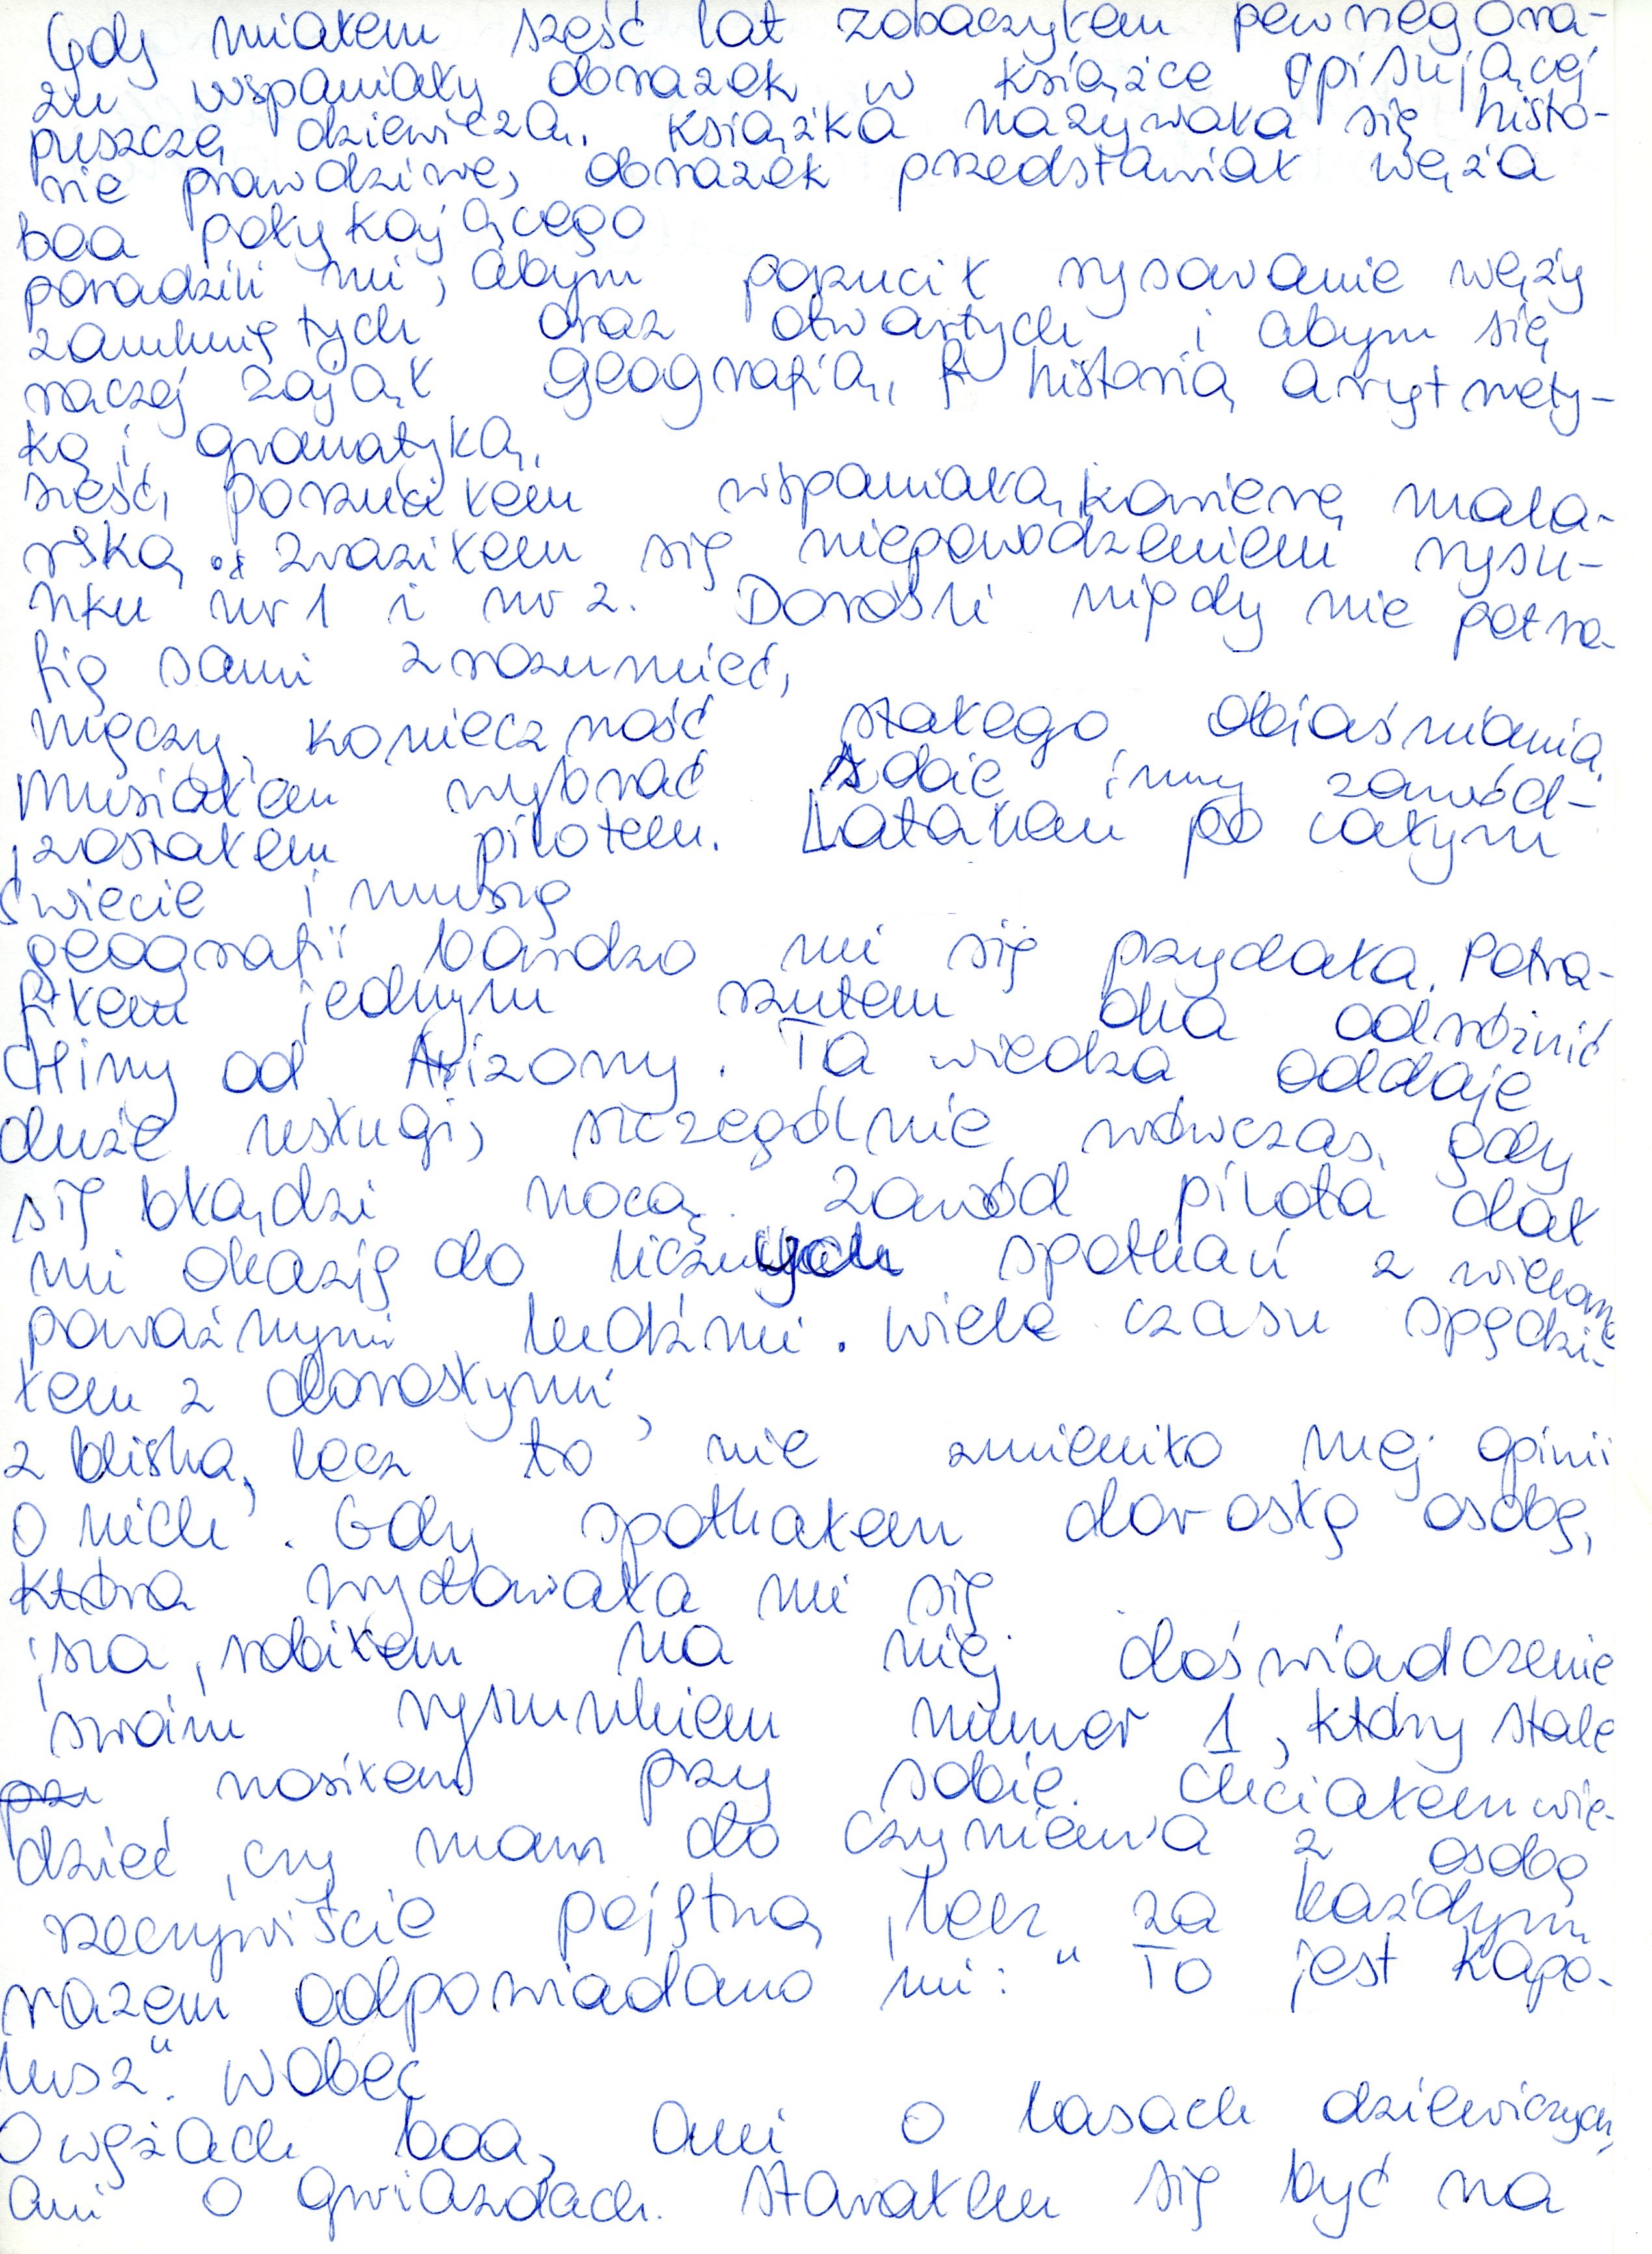 Gdy miałem sześć lat zobaczyłem pewnegora-
zu wspaniały obrazek w książce opisującej
puszczę dziewiczą. Książka nazywała się histo-
rie prawdziwe, obrazek przedstawiał węża
boa połykającego
poradzili mi, abym porzucił rysowanie węży
zamkniętych oraz otwartych i abym się
raczej zajął geografią, historią arytmety-
ką i gramatyką.
sześć, porzuciłem wspaniałą karierę mala-
rską. Zraziłem się niepowodzeniem rysu-
nku nr 1 i nr 2. Dorośli nigdy nie potra-
fią sami zrozumieć,
męczy konieczność stałego objaśniania.
Musiałem wybrać sobie inny zawód-
zostałem pilotem. Latałem po całym
świecie i muszę
geografii bardzo mi się przydała. Potra-
fiłem jednym rzutem oka odróżnić
CHiny od Arizony. Ta wiedza oddaje
duże usługi, szczególnie wówczas, gdy
się błądzi nocą. Zawód pilota dał
mi okazję do licznych spotkań z wieloma
poważnymi ludźmi. Wiele czasu spędzi-
łem z dorosłymi,
z bliska, lecz to nie zmieniło mej opinii
o nich. Gdy spotkałem dorosłą osobę,
która wydawała mi się
jsza, robiłem na niej doświadczenie
swoim rysunkiem numer 1, który stale
prz nosiłem przy sobie. Chciałem wie-
dzieć, czy mam do czynienia z osobą
rzeczywiście pojętną, lecz za każdym
razem odpowiadano mi: "To jest kape-
lusz". Wobec
O wężach boa, ani o lasach dziewiczych,
ani o gwiazdach. Starałem się być na